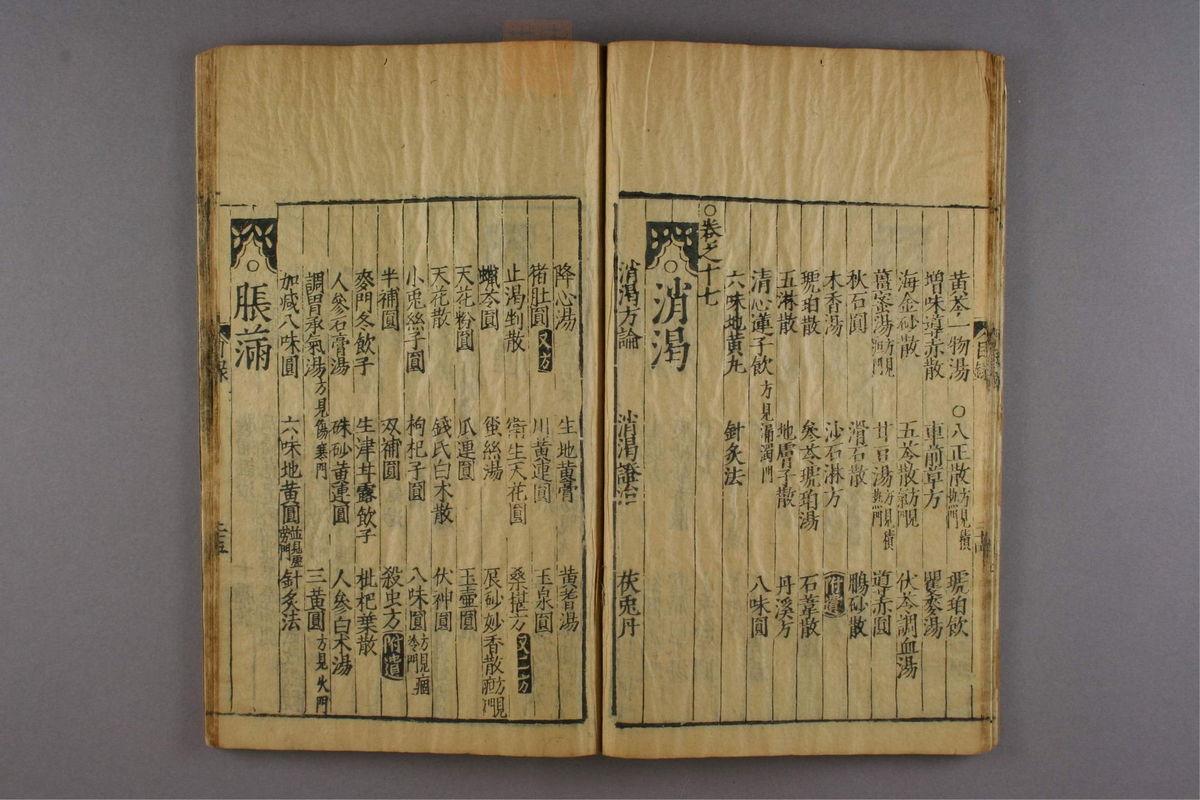 黃芩一物湯 ○八正散方見積熱門 琥珀飲
增味導赤散 車前草方 瞿麥湯
海金砂散 五苓散方見 伏苓調血湯
薑蜜湯方見 甘豆湯方見積熱門 導赤圓
秋石圓 滑石散 鵬砂散
木香湯 沙石淋方 附遺
琥珀散 參苓琥珀湯 石葦散
五淋散 地膚子散 丹溪方
清心蓮子飲方見漏濁門 八味圓
六味地黃丸 針灸法
○卷之十七
○消渴
消渴方論 消渴證治 茯兎丹
降心湯 生地黃膏 黃耆湯
猪肚圓又方 川黃連圓 玉泉圓
止渴剉散 衛生天花圓 桑椹方又二方
蠟苓圓 蚕絲湯 辰砂妙香散
天花粉圓 瓜連圓 玉壺圓
天花散 錢氏白朮散 伏神圓
小兎絲子圓 枸杞子圓 八味圓方見痼冷門
半補圓 双補圓 殺虫方附遺
麥門冬飲子 生津甘露飲子 枇杷葉散
人參石膏湯 硃砂黃連圓 人參白朮湯
調胃承氣湯方見傷寒門 三黃圓方見火門
加減八味圓 六味地黃圓並見虛勞門 針灸法
○脹滿